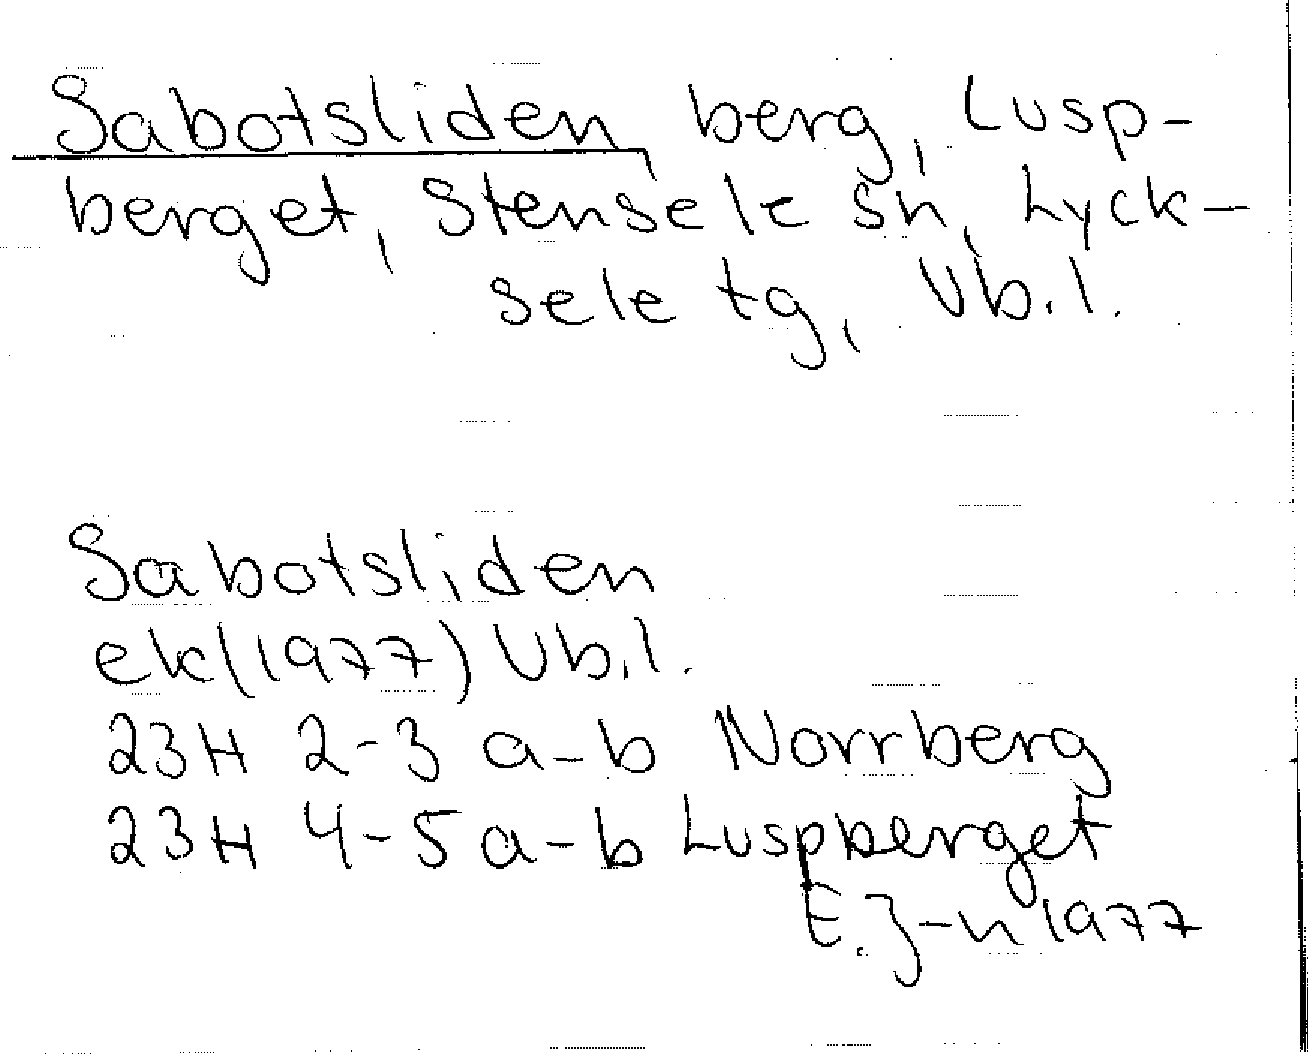 Sabotsliden, berg, Lusp-
berget, Stensele sn, Lyck-
sele tg, Vb.l.
Sabotsliden
ek(1977) Vb.l.
23H 2-3 a-b Norrberg
23H 4-5 a-b Luspberget
E.J-n 1977